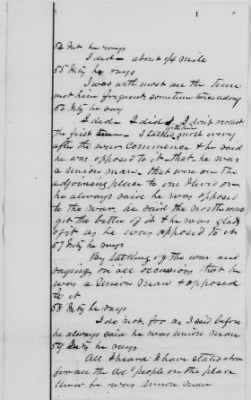 54 Inty he says
I did - about 1/4 mile
55 Inty he says
I was with most all the time
met him frequent sometimes twice a day
56 Inty he says
I did. I did. I don't recollect
the first time. I talked most every
after the war Commenced & he said
he was opposed to it - that he was
a union man. that were on the
adjoining place to me & lived on
he always said he was opposed
to the war, he said the north was
got the better of it & he was glad
of it as he was opposed to it
57 Inty he says
By talking of the war and
saying on all occasions that he
was a Union man & opposed
to it
58 Inty he says
I do not, for as I said before
he always said he was union man
59 Inty he says
All I heard I have stated above
for all the col people on the place
knew he was union man